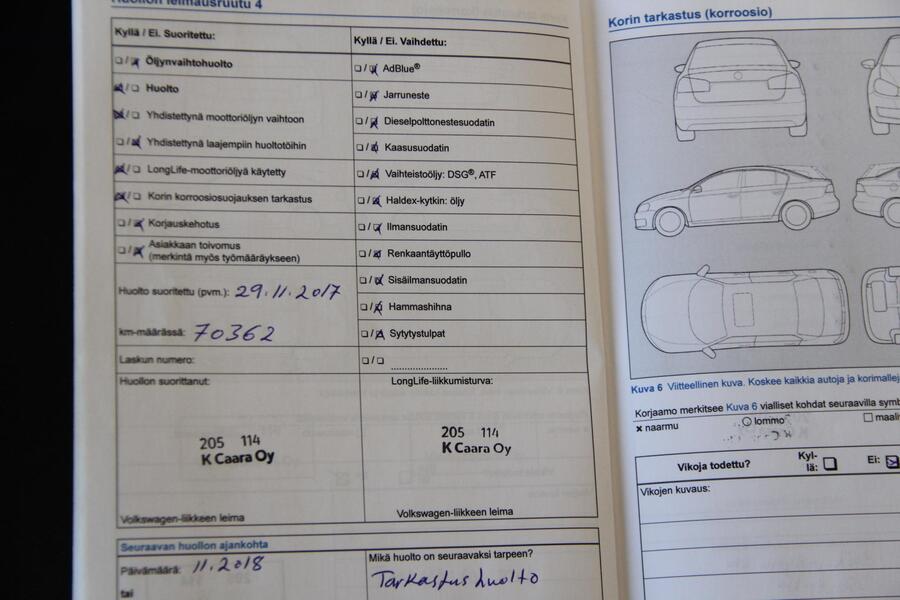 Huollon leimausruutu 4
Kyllä / Ei. Suoritettu:
❏ / ❏ Öljynvaihtohuolto
❏ / ❏ Huolto
❏ / ❏ Yhdistettynä moottoriöljyn vaihtoon
❏ / ❏ Yhdistettynä laajempiin huoltotöihin
❏ / ❏ LongLife-moottoriöljyä käytetty
❏ / ❏ Korin korroosiosuojauksen tarkastus
❏ / ❏ Korjauskehotus
❏ / ❏ Asiakkaan toivomus
(merkintä myös työmääräykseen)
Huolto suoritettu (pvm.): 29.11.2017
km-määrässä: 70362
Laskun numero:
Huollon suorittanut:
205 114
K Caara Oy
Volkswagen-liikkeen leima
Kyllä / Ei. Vaihdettu:
❏ / ❏ AdBlue®
❏ / ❏ Jarruneste
❏ / ❏ Dieselpolttonestesuodatin
❏ / ❏ Kaasusuodatin
❏ / ❏ Vaihteistoöljy: DSG®, ATF
❏ / ❏ Haldex-kytkin: öljy
❏ / ❏ Ilmansuodatin
❏ / ❏ Renkaantäyttöpullo
❏ / ❏ Sisäilmansuodatin
❏ / ❏ Hammashihna
❏ / ❏ Sytytystulpat
❏ / ❏ ....................
LongLife-liikkumisturva:
205 114
K Caara Oy
Volkswagen-liikkeen leima
Seuraavan huollon ajankohta
Päivämäärä: 11.2018
tai
Mikä huolto on seuraavaksi tarpeen?
Tarkastushuolto
Korin tarkastus (korroosio)
Kuva 6 Viitteellinen kuva. Koskee kaikkia autoja ja
Korjaamo merkitsee Kuva 6 vialliset kohdat seuraavilla
× naarmu
lommo
Vikoja todettu?
Kyl-
lä: ❏
Ei: ❏
Vikojen kuvaus: